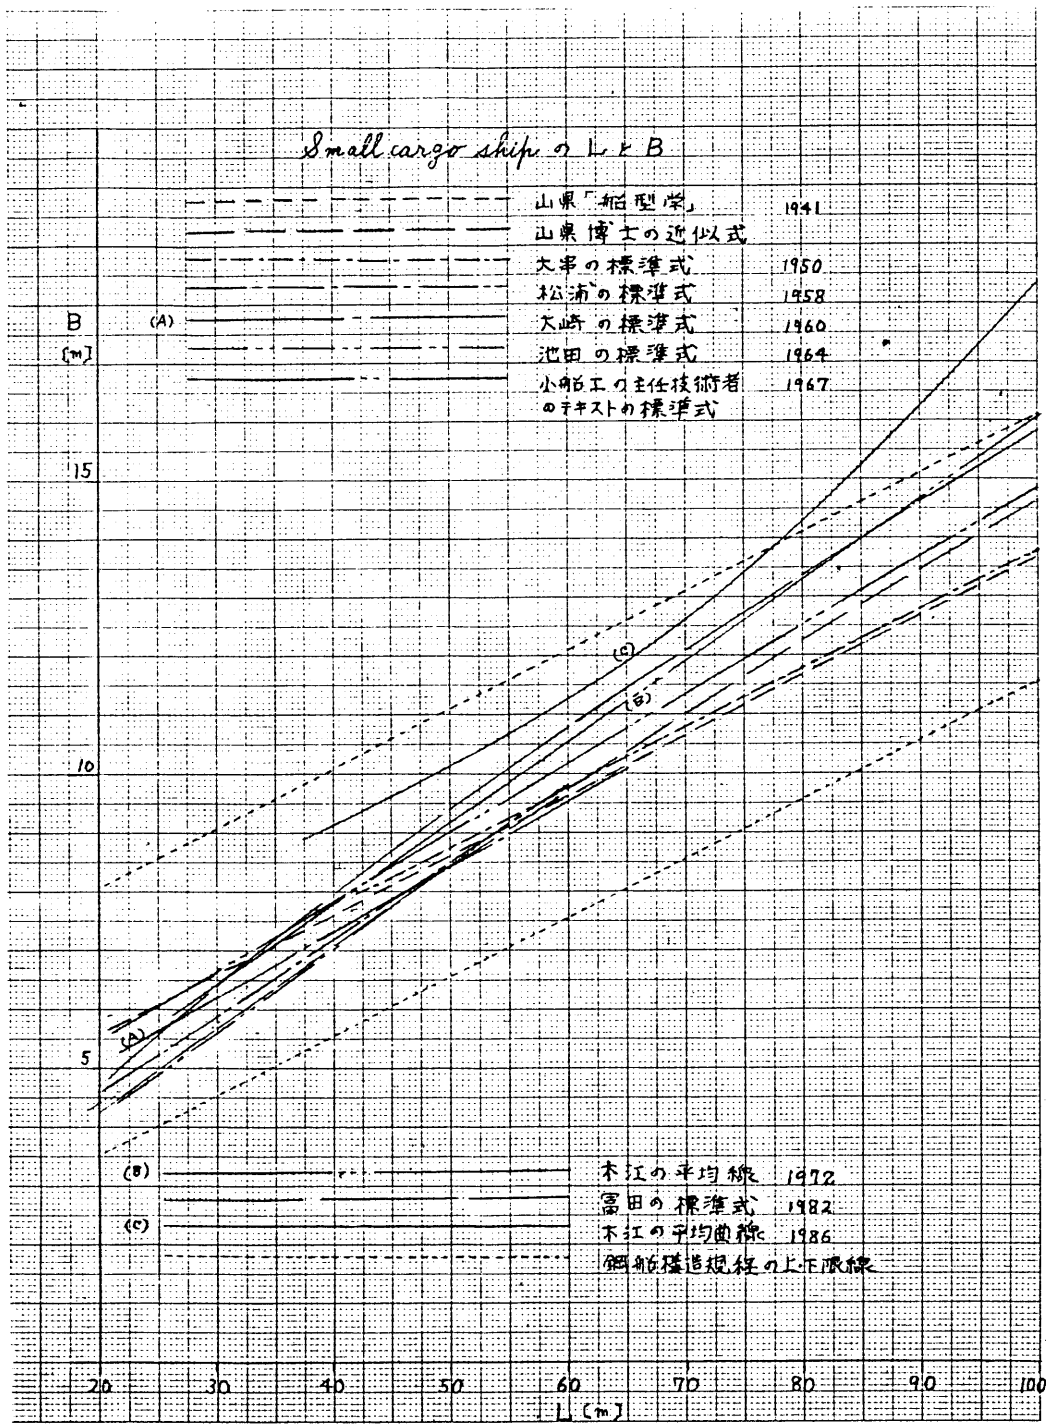 Small cargo ship の L と B
山県「船型学」 1941
山県博士の近似式
大串の標準式 1950
松浦の標準式 1958
B (A) 大崎の標準式 1960
[m] 池田の標準式 1964
小船工の主任技術者 1967
のテキストの標準式
15
(C)
(B)
10
(A)
5
(B) 木江の平均線 1972
冨田の標準式 1982
(C) 木江の平均曲線 1986
鋼船構造規程の上下限線
20 30 40 50 60 70 80 90 100
L [m]